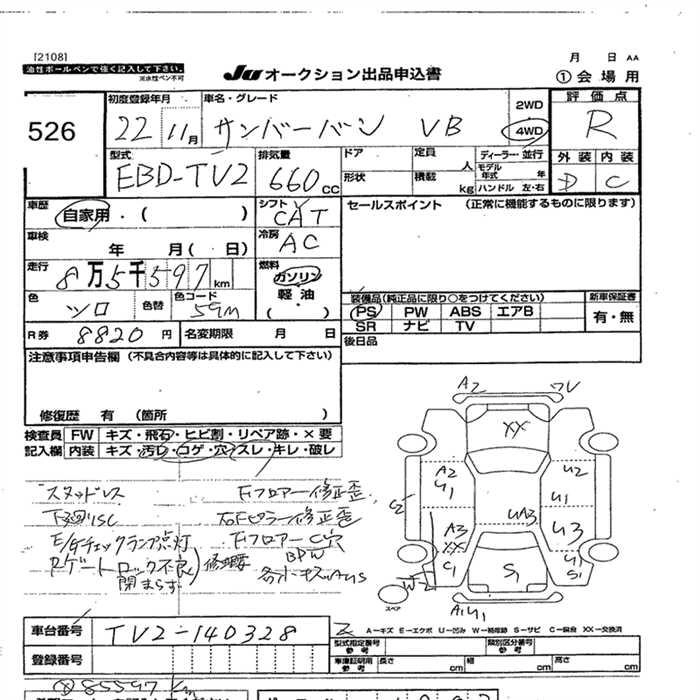 [2108]
油性ボールペンで強く記入して下さい。
※水性ペン不可
JU オークション出品申込書
月 日 AA
①会場用
526
初度登録年月
22 11月
車名・グレード
サンバーバン VB
2WD
4WD
評価点
R
外装 内装
D C
型式
EBD-TV2
排気量
660cc
ドア
形状
定員
人
積載
kg
ディーラー・並行
モデル年式 年
ハンドル 左・右
車歴
自家用・( )
シフト
CAT
セールスポイント (正常に機能するものに限ります)
車検
年 月( 日)
冷房
AC
走行
8万5千597km
燃料
ガソリン
軽油
・( )
色
シロ
色替
色コード
59M
装備品(純正品に限り○をつけてください)
PS PW ABS エアB
SR ナビ TV
新車保証書
有・無
R券 8820円
名変期限 月 日
後日品
注意事項申告欄 (不具合内容等は具体的に記入して下さい)
修復歴 有 (箇所 )
検査員記入欄
FW キズ・飛石・ヒビ割・リペア跡・×要
内装 キズ・汚レ・コゲ・穴・スレ・キレ・破レ
スタッドレス
下廻りSC
E/gチェックランプ点灯
Rゲートロック不良 修理要
閉まらず
Fフロアー修正歪
右Fピラー修正歪
FフロアーC穴
BPW
各小キズAUS
A2
XX
A2
U1
U2
U1
UA3
U3
A3
XX
C1
S1
U1
S1
A1U1
スペア
車台番号 TV2-140328
登録番号
A-キズ E-エクボ U-凹み W-補修跡 S-サビ C-腐蝕 XX-交換済
型式指定番号
参考
類別区分番号
参考
車庫証明用
参考
長さ cm
幅 cm
高さ cm
85597km